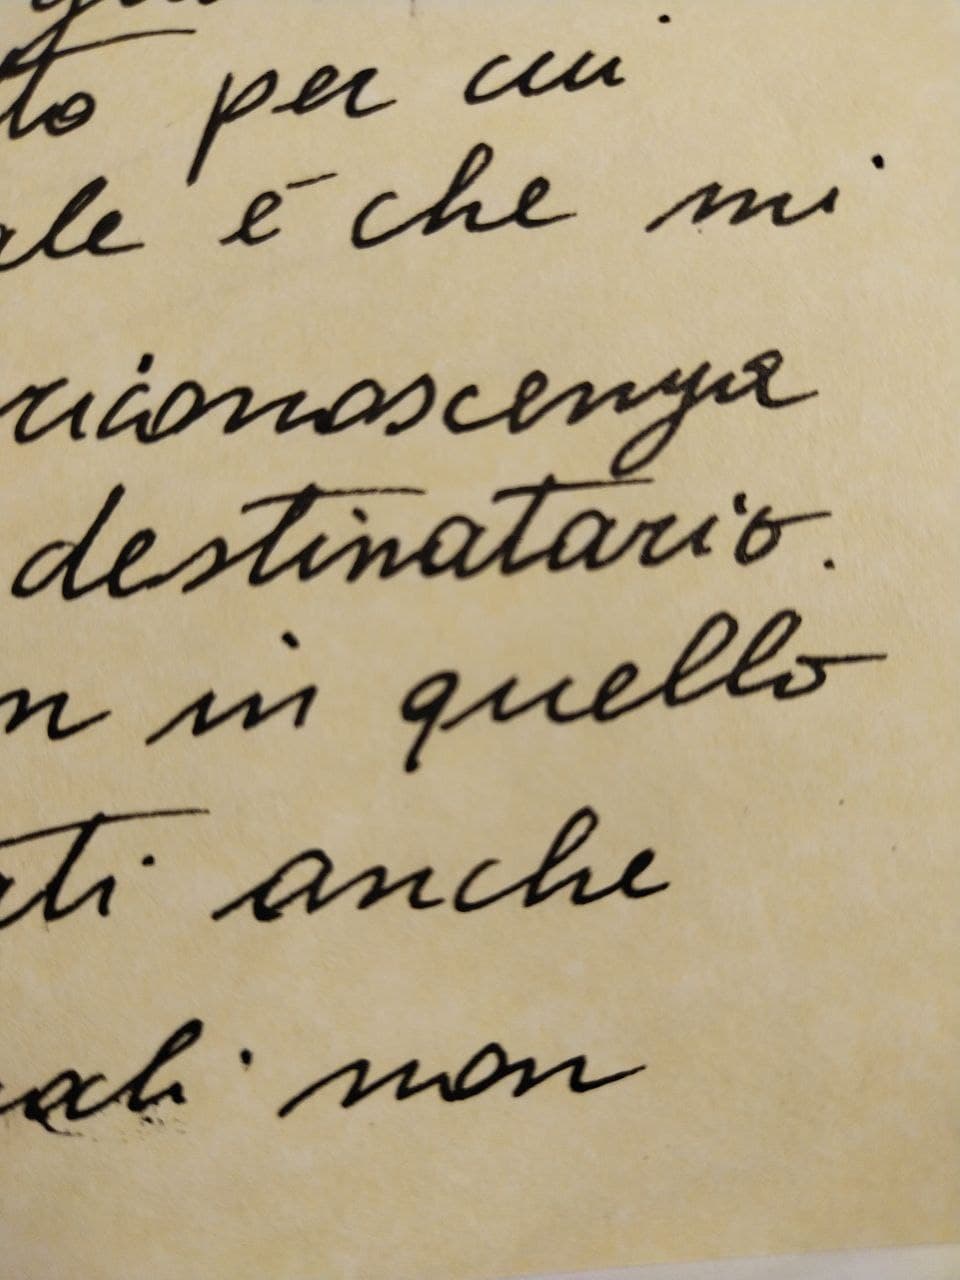 per cui
è che mi
riconoscenza
destinatario.
in quello
anche
non